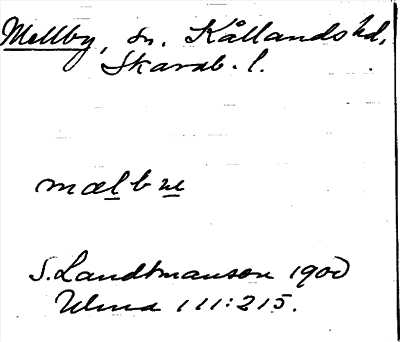 Mellby, sn. Kållands hd,
Skarab. l.
mælbu̲e̲
S. Landtmanson 1900
Ulma 111:215.